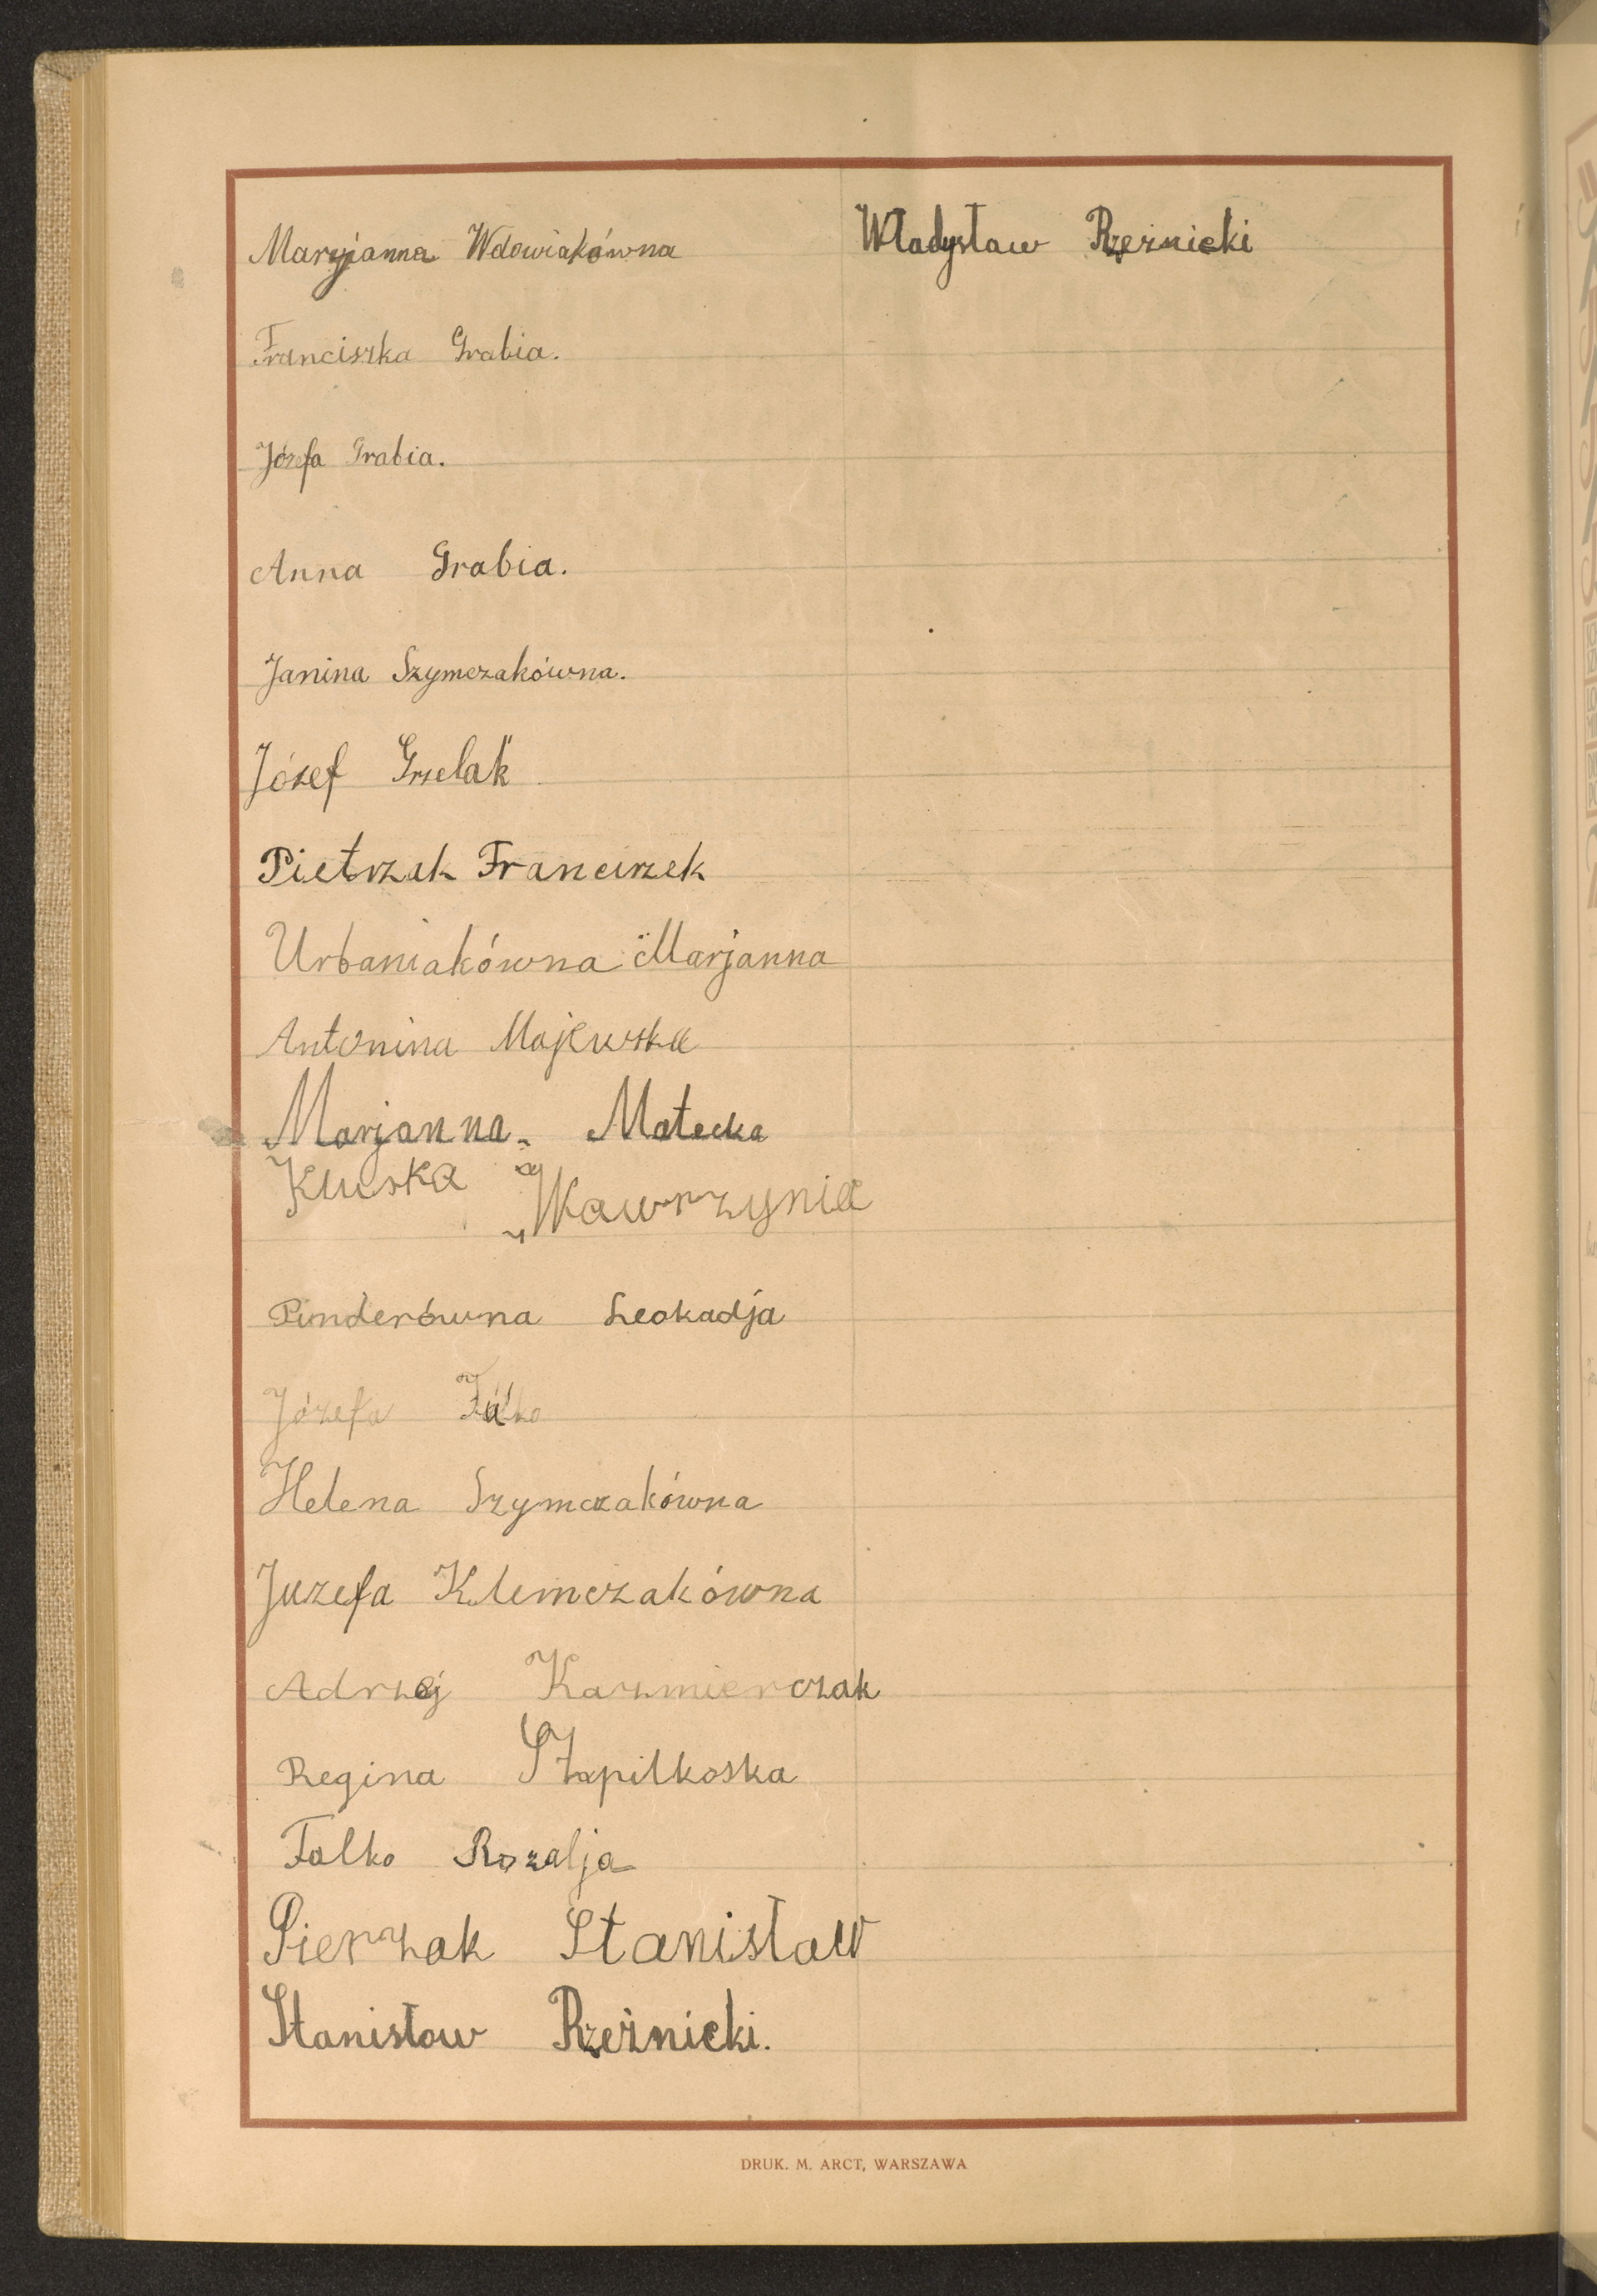 Maryjanna Wdowiakówna
Franciszka Grabia.
Józefa Grabia.
Anna Grabia.
Janina Szymczakówna.
Józef Grzelak
Pietrzak Franciszek
Urbaniakówna Marjanna
Antonina Majewska
Marjanna Małecka
Kluska Wawrzynia
Pinderówna Leokadja
Józefa Falko
Helena Szymczakówna
Juzefa Klemczakówna
Adrzej Kazmierczak
Regina
Falko Rozalja
Pierzak Stanisław
Stanisław Rzeźnicki.
Władysław Rzeźnicki
DRUK. M. ARCT, WARSZAWA